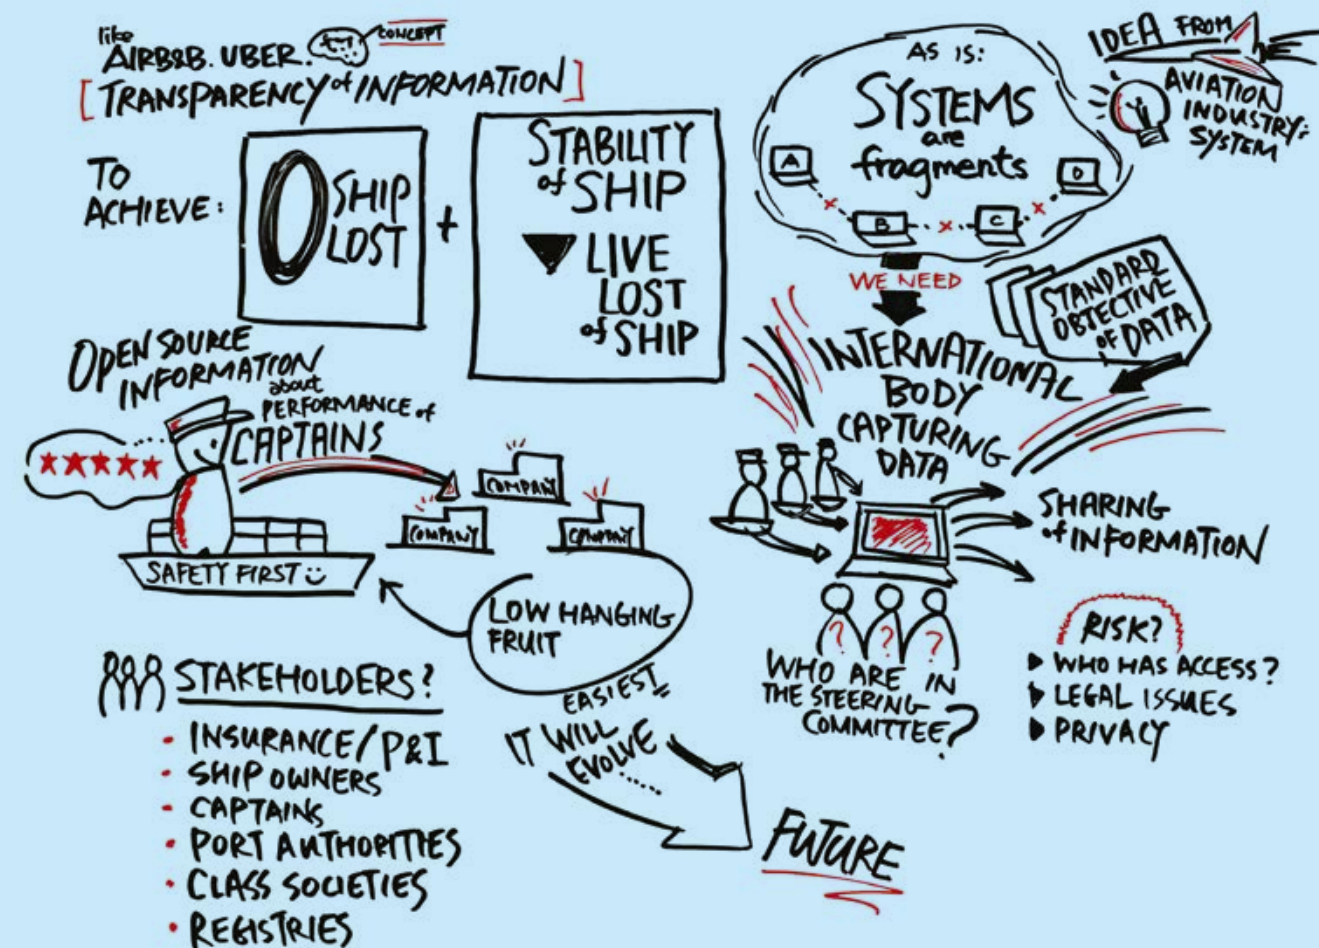 like
AIRB&B. UBER.
CONCEPT
[TRANSPARENCY of INFORMATION]
TO
ACHIEVE:
0 SHIP
LOST
+
STABILITY
of SHIP
▼ LIVE
LOST
of SHIP
OPEN SOURCE
INFORMATION
about
PERFORMANCE of
CAPTAINS
★★★★★
COMPANY
COMPANY
COMPANY
SAFETY FIRST
LOW HANGING
FRUIT
EASIEST
STAKEHOLDERS?
• INSURANCE/P&I
• SHIP OWNERS
• CAPTAINS
• PORT AUTHORITIES
• CLASS SOCIETIES
• REGISTRIES
IT WILL
EVOLVE .....
FUTURE
AS IS:
SYSTEMS
are
fragments
A
B
C
D
IDEA FROM
AVIATION
INDUSTRY:
SYSTEM
WE NEED
STANDARD
OBJECTIVE
OF DATA
INTERNATIONAL
BODY
CAPTURING
DATA
SHARING
of INFORMATION
? ? ?
WHO ARE IN
THE STEERING
COMMITTEE?
RISK?
▶ WHO HAS ACCESS?
▶ LEGAL ISSUES
▶ PRIVACY